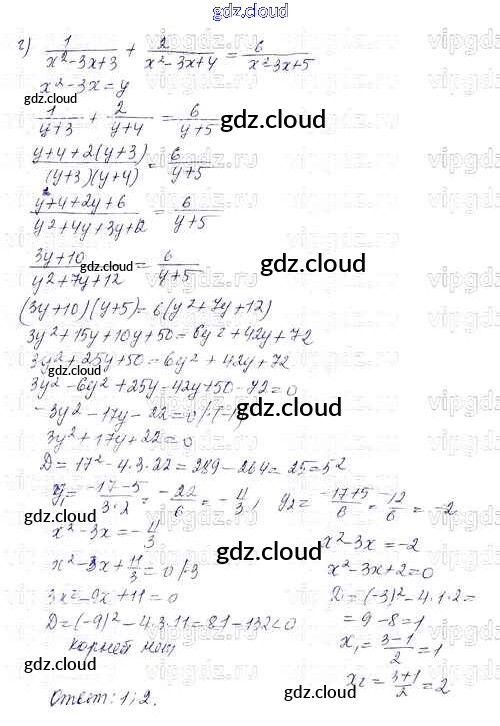 gdz.cloud
г) 1/(x²-3x+3) + 2/(x²-3x+4) = 6/(x²-3x+5)
x²-3x=y
gdz.cloud
1/(y+3) + 2/(y+4) = 6/(y+5)
gdz.cloud
(y+4+2(y+3))/((y+3)(y+4)) = 6/(y+5)
gdz.cloud
(y+4+2y+6)/(y²+4y+3y+12) = 6/(y+5)
(3y+10)/(y²+7y+12) = 6/(y+5)
gdz.cloud
gdz.cloud
(3y+10)(y+5)=6(y²+7y+12)
3y²+15y+10y+50=6y²+42y+72
3y²+25y+50=6y²+42y+72
3y²-6y²+25y-42y+50-72=0
gdz.cloud
-3y²-17y-22=0 /·(-1)
3y²+17y+22=0
gdz.cloud
D=17²-4·3·22=289-264=25=5²
y=(-17-5)/(3·2)=-22/6=-
y₂=(-17+5)/6=-12/6=-2
gdz.cloud
x²-3x=-
gdz.cloud
x²-3x=-2
gdz.cloud
x²-3x+11/3=0 /·3
x²-3x+2=0
3x²-9x+11=0
D=(-3)²-4·1·2=
gdz.cloud
D=(-9)²-4·3·11=81-132<0
=9-8=1
корней нет
x₁=(3-1)/2=1
gdz.cloud
gdz.cloud
x₂=(3+1)/2=2
Ответ: 1; 2.
gdz.cloud
vipgdz.ru